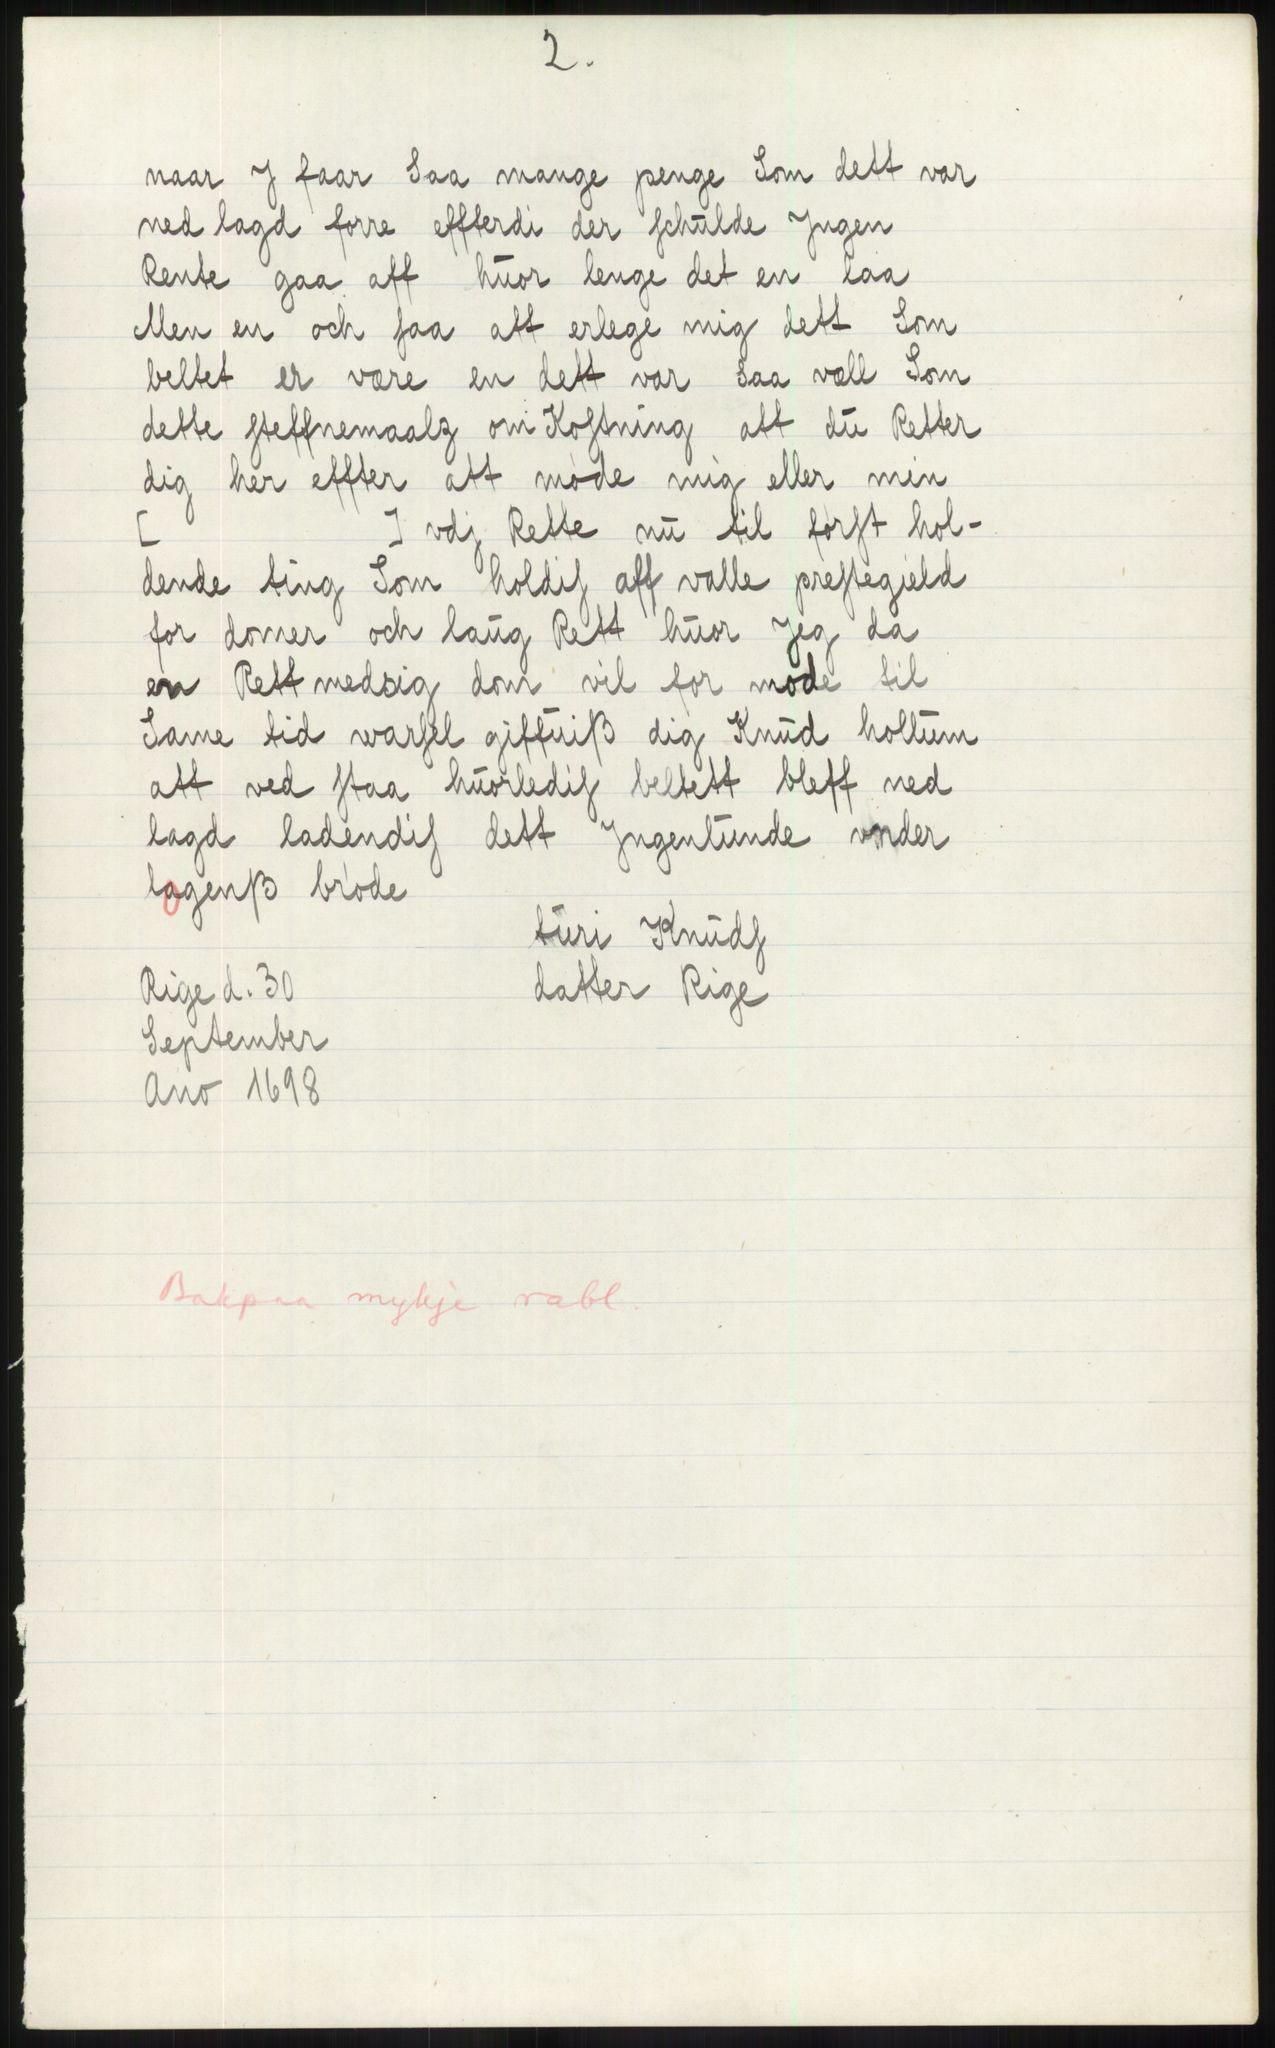 2.
naar J faar Saa mange penge Som dett var
ned lagd forre effterdi der schulde Jngen
Rente gaa aff huor lenge det en laa
Men en och saa att erlege mig dett Som
beltet er være en dett var Saa væll Som
dette steffnemaalz om Kostning att du Retter
dig her effter att møde mig eller min
[ ] vdj Rette nu til først hol-
dende ting Som holdis aff valle prestegield
for domer och laug Rett huor Jeg da
en Rettmedsig dom vil for mode til
Same tid warsel giffuiß dig Knud holtum
att ved staa huorledis beltett bleff ned
lagd ladendis dett Jngenlunde vnder
lagenß brøde
turi Knuds
datter Rige
Rige d. 30
September
Ano 1698
Bakpaa mykje rabl.